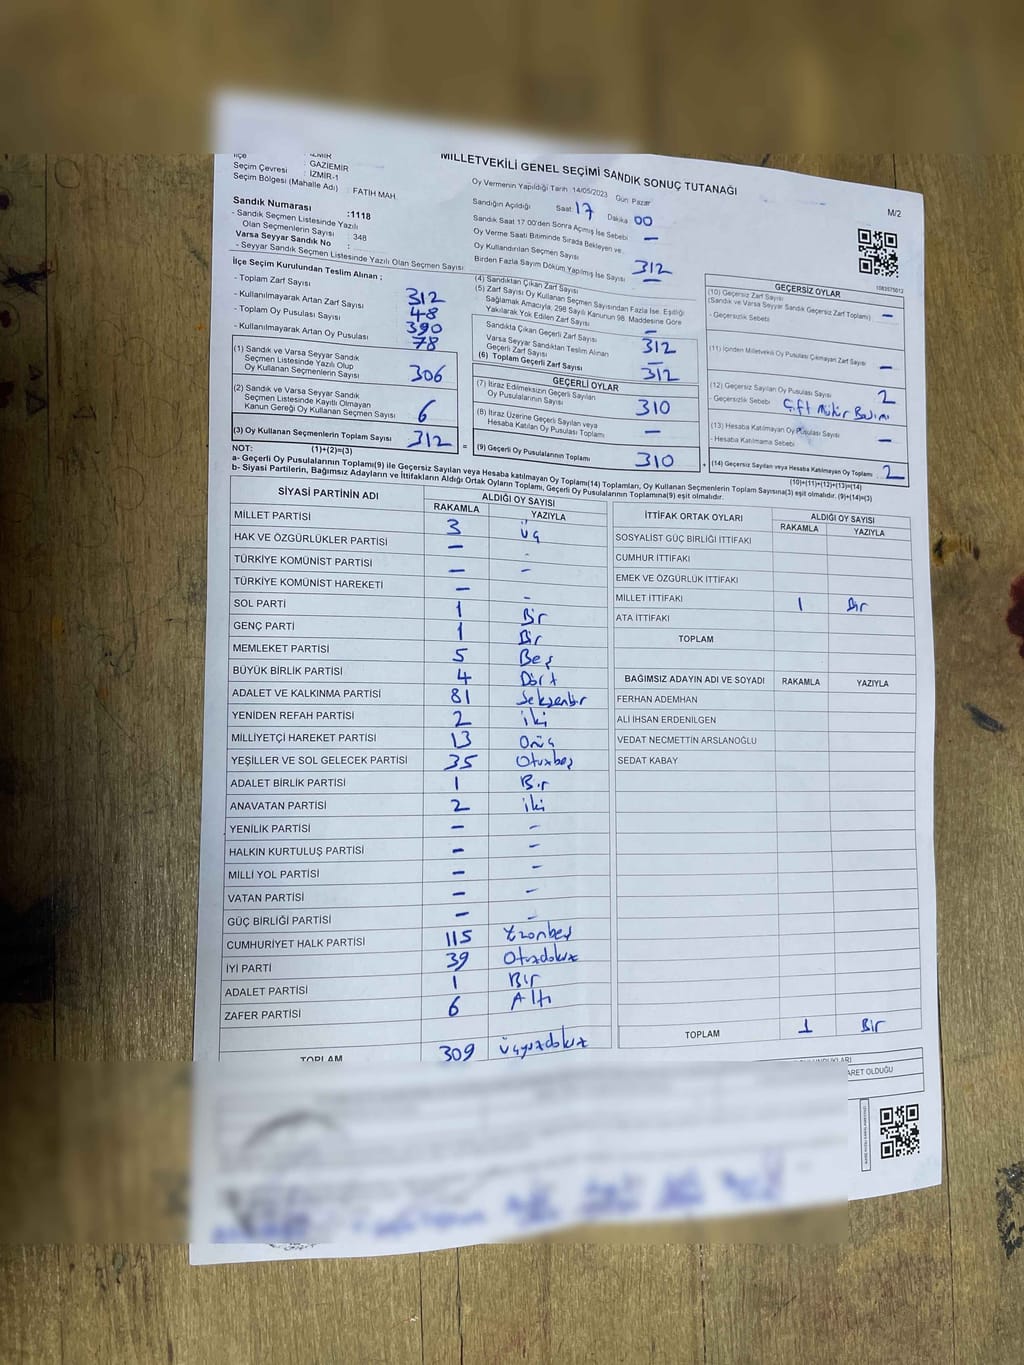 MİLLETVEKİLİ GENEL SEÇİMİ SANDIK SONUÇ TUTANAĞI
M/2
İlçe : GAZİEMİR
Seçim Çevresi : İZMİR-1
Seçim Bölgesi (Mahalle Adı) : FATİH MAH
Sandık Numarası :1118
- Sandık Seçmen Listesinde Yazılı
Olan Seçmenlerin Sayısı : 348
Varsa Seyyar Sandık No :
- Seyyar Sandık Seçmen Listesinde Yazılı Olan Seçmen Sayısı
Oy Vermenin Yapıldığı Tarih 14/05/2023 Gün Pazar
Sandığın Açıldığı Saat: 17 Dakika 00
Sandık Saat 17 00'den Sonra Açımış İse Sebebi —
Oy Verme Saati Bitiminde Sırada Bekleyen ve
Oy Kullandırılan Seçmen Sayısı
Birden Fazla Sayım Döküm Yapılmış İse Sayısı —
İlçe Seçim Kurulundan Teslim Alınan ;
- Toplam Zarf Sayısı 312
- Kullanılmayarak Artan Zarf Sayısı 48
- Toplam Oy Pusulası Sayısı 390
- Kullanılmayarak Artan Oy Pusulası 78
(1) Sandık ve Varsa Seyyar Sandık
Seçmen Listesinde Yazılı Olup
Oy Kullanan Seçmenlerin Sayısı 306
(2) Sandık ve Varsa Seyyar Sandık
Seçmen Listesinde Kayıtlı Olmayan
Kanun Gereği Oy Kullanan Seçmen Sayısı 6
(3) Oy Kullanan Seçmenlerin Toplam Sayısı 312
(1)+(2)=(3)
(4) Sandıktan Çıkan Zarf Sayısı 312
(5) Zarf Sayısı Oy Kullanan Seçmen Sayısından Fazla İse, Eşitliği
Sağlamak Amacıyla, 298 Sayılı Kanunun 98. Maddesine Göre
Yakılarak Yok Edilen Zarf Sayısı —
Sandıkta Çıkan Geçerli Zarf Sayısı 312
Varsa Seyyar Sandıktan Teslim Alınan
Geçerli Zarf Sayısı —
(6) Toplam Geçerli Zarf Sayısı 312
GEÇERLİ OYLAR
(7) İtiraz Edilmeksizin Geçerli Sayılan
Oy Pusulalarının Sayısı 310
(8) İtiraz Üzerine Geçerli Sayılan veya
Hesaba Katılan Oy Pusulası Toplamı —
(9) Geçerli Oy Pusulalarının Toplamı 310
1083575012
GEÇERSİZ OYLAR
(10) Geçersiz Zarf Sayısı
(Sandık ve Varsa Seyyar Sandık Geçersiz Zarf Toplamı) —
- Geçersizlik Sebebi
(11) İçinden Milletvekili Oy Pusulası Çıkmayan Zarf Sayısı —
(12) Geçersiz Sayılan Oy Pusulası Sayısı 2
- Geçersizlik Sebebi Çift Mühür Basımı
(13) Hesaba Katılmayan Oy Pusulası Sayısı —
- Hesaba Katılmama Sebebi
(14) Geçersiz Sayılan veya Hesaba Katılmayan Oy Toplamı 2
(10)+(11)+(12)+(13)=(14)
NOT:
a- Geçerli Oy Pusulalarının Toplamı(9) ile Geçersiz Sayılan veya Hesaba katılmayan Oy Toplamı(14) Toplamları, Oy Kullanan Seçmenlerin Toplam Sayısına(3) eşit olmalıdır. (9)+(14)=(3)
b- Siyasi Partilerin, Bağımsız Adayların ve İttifakların Aldığı Ortak Oyların Toplamı, Geçerli Oy Pusulalarının Toplamına(9) eşit olmalıdır.
SİYASİ PARTİNİN ADI ALDIĞI OY SAYISI
RAKAMLA YAZIYLA
MİLLET PARTİSİ 3 Üç
HAK VE ÖZGÜRLÜKLER PARTİSİ — -
TÜRKİYE KOMÜNİST PARTİSİ — -
TÜRKİYE KOMÜNİST HAREKETİ — -
SOL PARTİ 1 Bir
GENÇ PARTİ 1 Bir
MEMLEKET PARTİSİ 5 Beş
BÜYÜK BİRLİK PARTİSİ 4 Dört
ADALET VE KALKINMA PARTİSİ 81 Seksenbir
YENİDEN REFAH PARTİSİ 2 iki
MİLLİYETÇİ HAREKET PARTİSİ 13 Onüç
YEŞİLLER VE SOL GELECEK PARTİSİ 35 Otuzbeş
ADALET BİRLİK PARTİSİ 1 Bir
ANAVATAN PARTİSİ 2 iki
YENİLİK PARTİSİ — -
HALKIN KURTULUŞ PARTİSİ — -
MİLLİ YOL PARTİSİ — -
VATAN PARTİSİ — -
GÜÇ BİRLİĞİ PARTİSİ — -
CUMHURİYET HALK PARTİSİ 115 Yüzonbeş
İYİ PARTİ 39 Otuzdokuz
ADALET PARTİSİ 1 Bir
ZAFER PARTİSİ 6 Altı
TOPLAM 309 üçyüzdokuz
İTTİFAK ORTAK OYLARI ALDIĞI OY SAYISI
RAKAMLA YAZIYLA
SOSYALİST GÜÇ BİRLİĞİ İTTİFAKI
CUMHUR İTTİFAKI
EMEK VE ÖZGÜRLÜK İTTİFAKI
MİLLET İTTİFAKI 1 Bir
ATA İTTİFAKI
TOPLAM
BAĞIMSIZ ADAYIN ADI VE SOYADI RAKAMLA YAZIYLA
FERHAN ADEMHAN
ALİ İHSAN ERDENİLGEN
VEDAT NECMETTİN ARSLANOĞLU
SEDAT KABAY
TOPLAM 1 Bir
ARET OLDUĞU